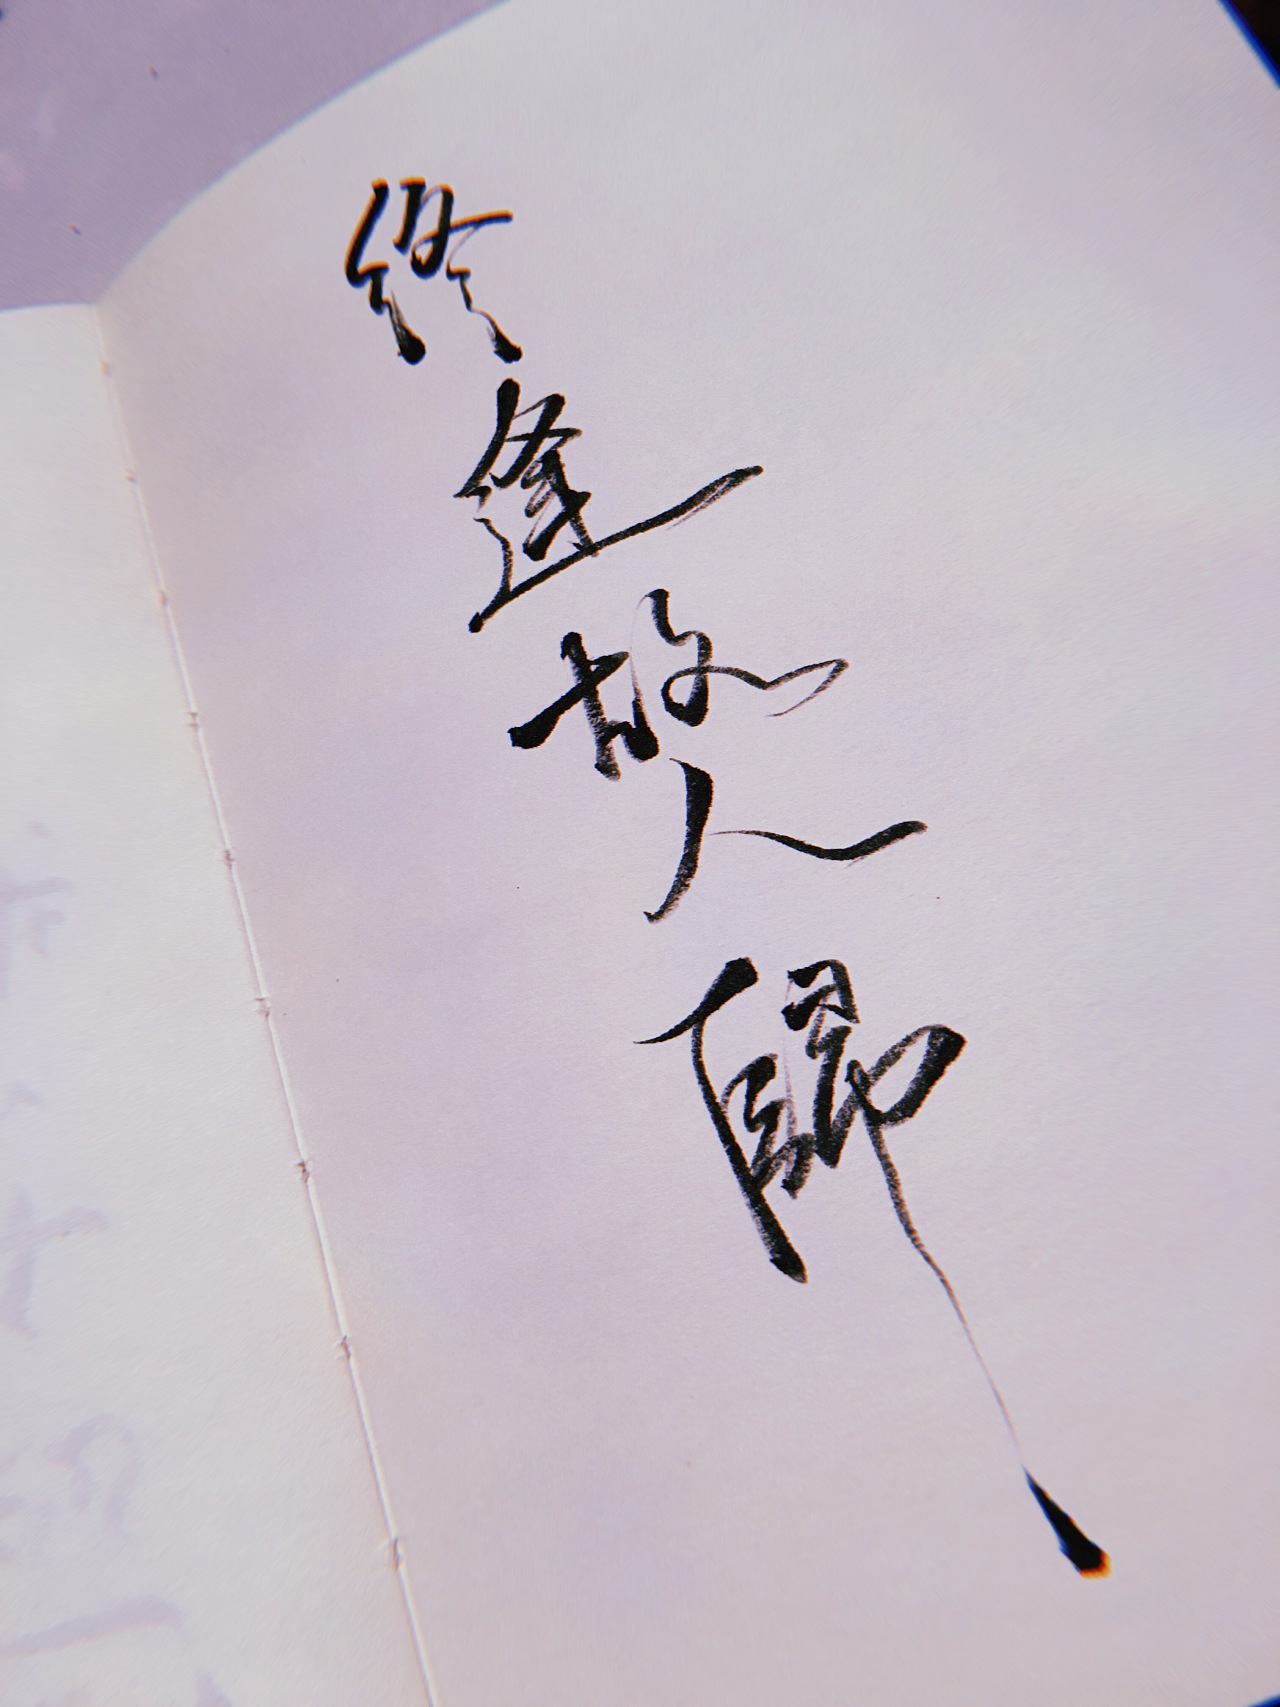 终逢故人歸